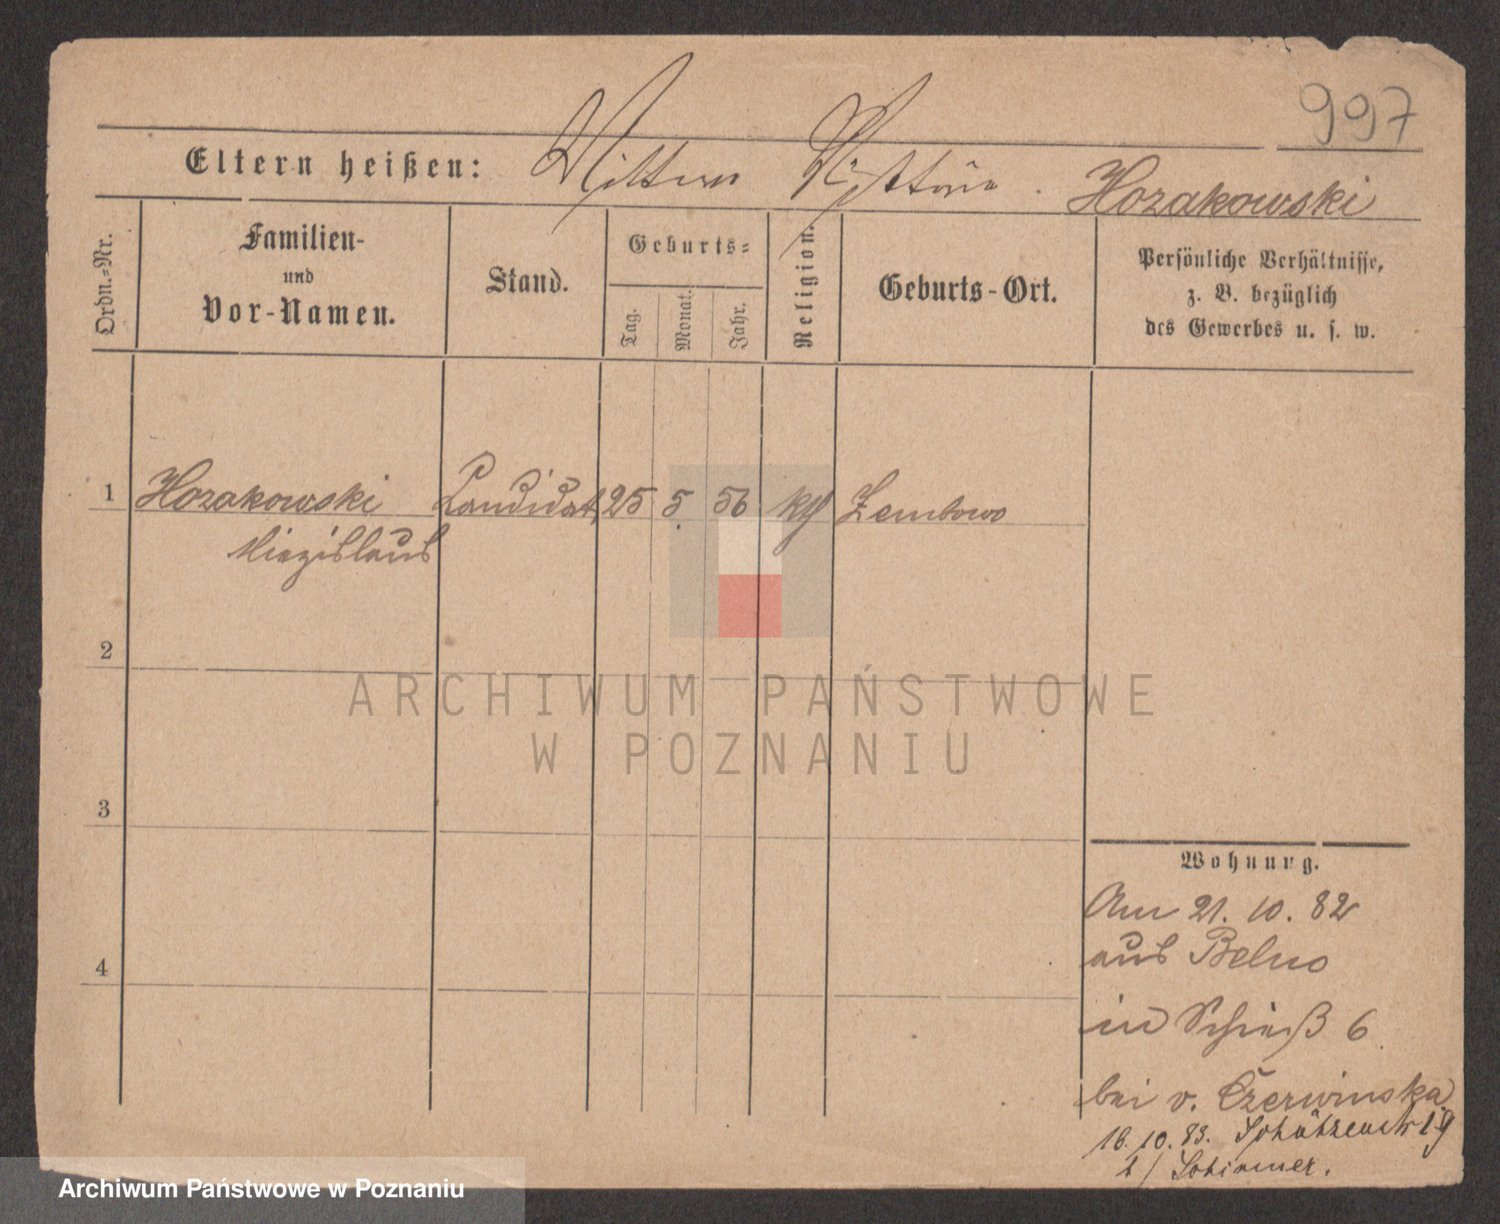 997
Eltern heißen: Hozakowski
Ordn.-Nr.
Familien-
und
Vor-Namen.
Stand.
Geburts-
Tag.
Monat.
Jahr.
Religion.
Geburts-Ort.
Persönliche Verhältnisse,
z. B. bezüglich
des Gewerbes u. s. w.
1 Hozakowski Candidat 25 5 56 kth Zembowo
Miezislaus
2
3
4
ARCHIWUM PAŃSTWOWE
W POZNANIU
Wohnung.
Am 21. 10. 82
aus Belno
in Schieß 6
bei v. Czerwinska
18. 10. 83. Schützenstr 19
b/
Archiwum Państwowe w Poznaniu